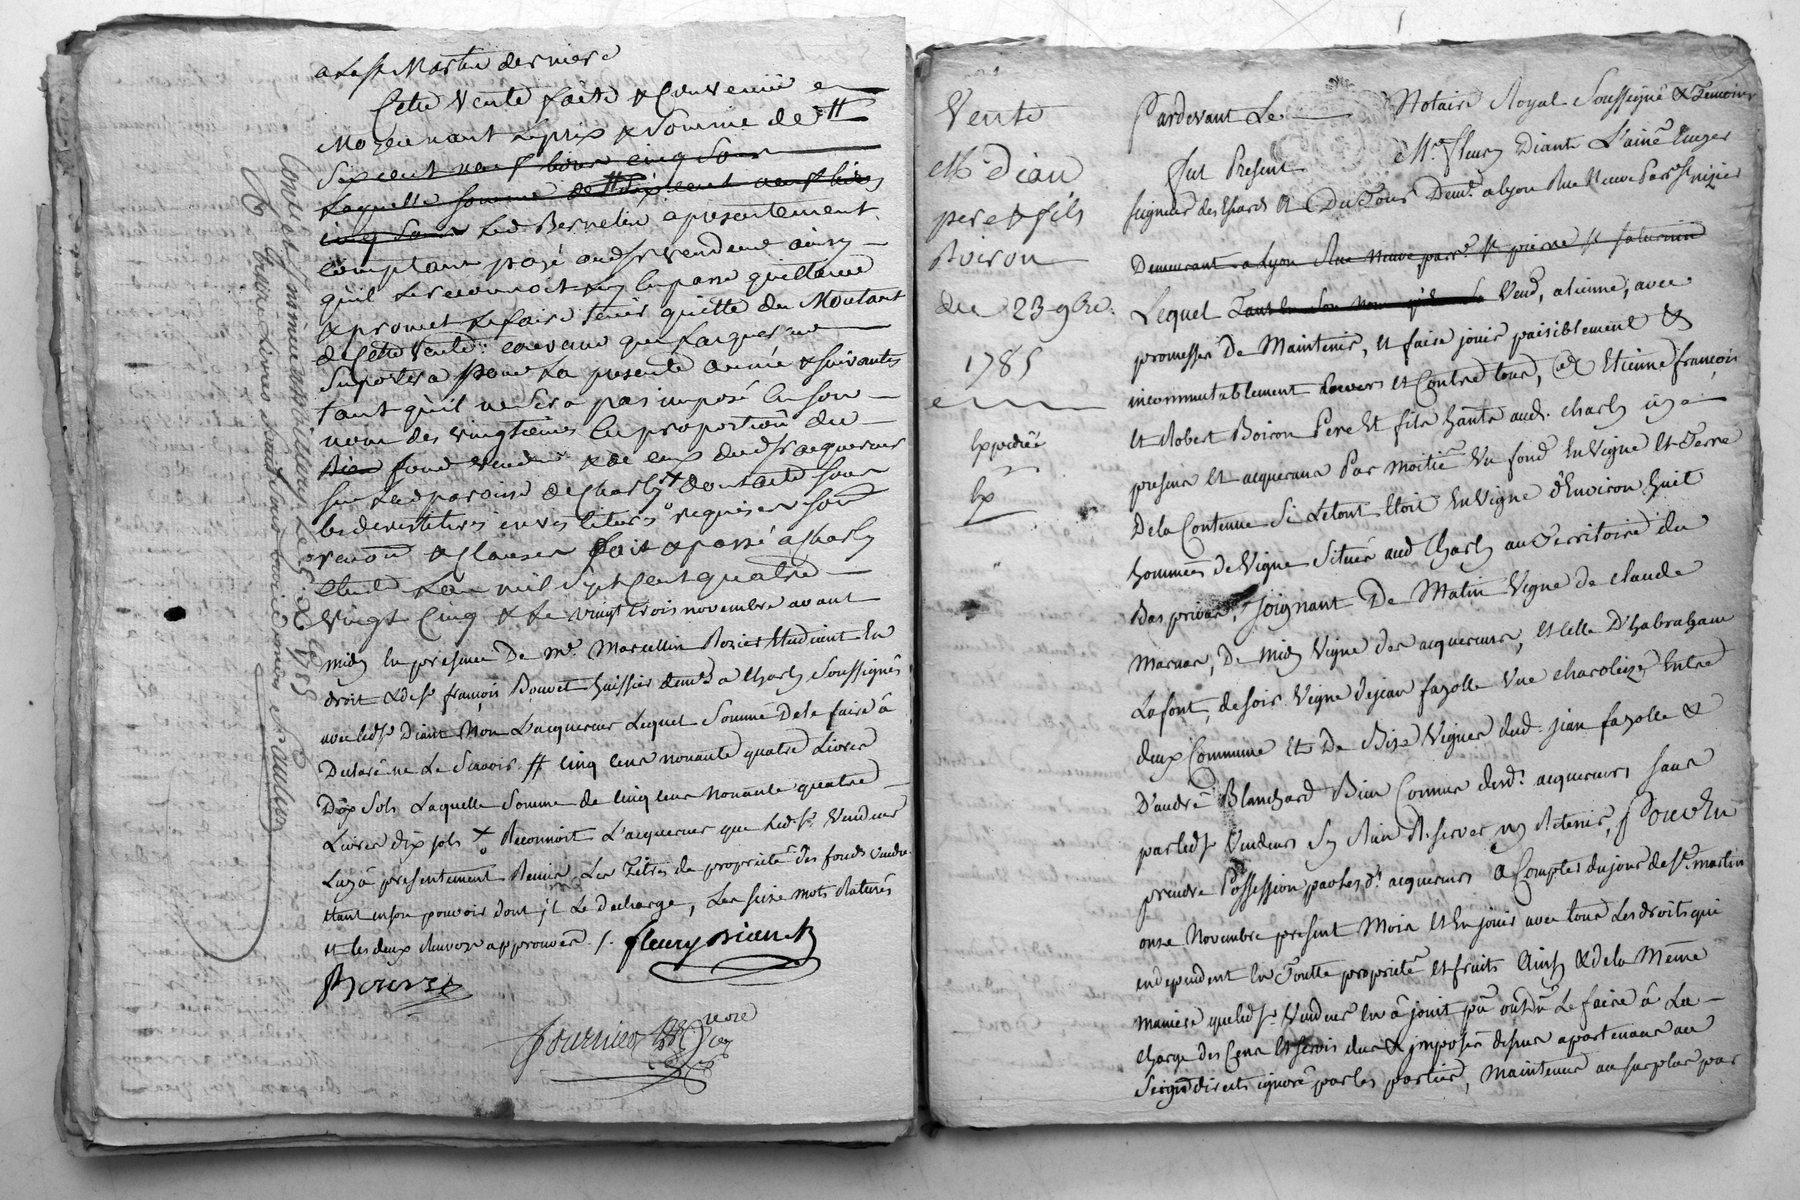 a la St Martin derniere
Cette vente faite & convenüe en
Moyennant le prix & Somme de
Six cent neuf livres cinq sous
Laquelle somme de Six cent neuf livres
cinq sous Led Bernelin a presentement
comptant payé aud Sr vendeur ainsy
qu'il le reconnoit en passe quittance
& promet le faire tenir quitte du Montant
de Cette vente: convenu que l'acquereur
Suportera pour la presente année & suivantes
tant qu'il ne sera pas imposé en son
nom des vingtiemes en proportion du
fond vendu & de ceux dud Sr acquereur
sur lad paroisse de Charly dont acte sous
les
renon & clauses fait & passé à Charly
Etude L'an mil Sept Cent quatre
Vingt Cinq & le vingt trois novembre avant
midy en presence De Me Marcellin Rozier Etudiant En
droit & de Sr françois Bouvet huissier demt a Charly Soussignés
avec led Sr Diant Non L'acquereur Lequel Sommé De le faire â
Declaré ne Le Scavoir # cinq cent nonante quatre Livres
Dix Sols Laquelle Somme de Cinq cent Nonante quatre
Livres dix sols + Reconnoit L'acquereur que led. Sr. Vendeur
Luy â presentement Remis Les Titres de proprieté des fonds vendus
Etant en son pouvoir dont il Le decharge, Les seize mots Raturés
et les deux Renvois approuvés /.
fleury Dian
Bouvet
fournier
Conte et Insinué a Millery Le 5 Xbre 1785
R/
Vente
Mr dian
pere & fils
Boiron
du 23 9bre.
1785
Expediée
Ex
Pardevant Le Notaire Royal Soussigné & Temoins
fut Present Mr. fleury Diant L'ainé Ecuyer
seigneur des Esards & Du Tour Demt. a Lyon Rue Neuve Parse St nizier
Demeurant a Lyon Rue Neuve parse. St pierre St saturnin
Lequel Vend, alienne, avec
promesses De Maintenir, et faire jouir paisiblement &
incommutablement Envers et Contre tous, a Etienne françois
et Robert Boiron Pere Et fils habts aud. Charly icy
presens et acquerans Par moitié Un fond En Vigne et Terre
De la Contenue Si Le tout Etoit En Vigne d'Environ huit
hommées de Vigne Situés aud Charly au Territoire du
Bas privas, Joignant De Matin Vigne de claude
Marnas, De midy Vigne des acquereurs, et celle D'habraham
Lafont, de soir Vigne de jean fayolle Une charoleize Entre
deux Commune Et De Bize Vignes dud. jean fayolle &
D'andré Blanchard Bien Connus desd. acquereurs sans
par led Sr Vendeur S'y Rien Reserver ny Retenir, Pour En
prendre Possession par lesdts acquereurs A Compter du jour de St. martin
onze Novembre present Mois et En jouir avec tous Les droits qui
en dependent En Toutte proprieté et fruits Ainsy & de la Mème
maniere que led Sr. Vendeur En â jouit pû ou dû Le faire â La
Charge des Cens Et Servis dus & imposés dessus apartenans au
Seigr direct ignoré par les parties, maintenus au surplus par